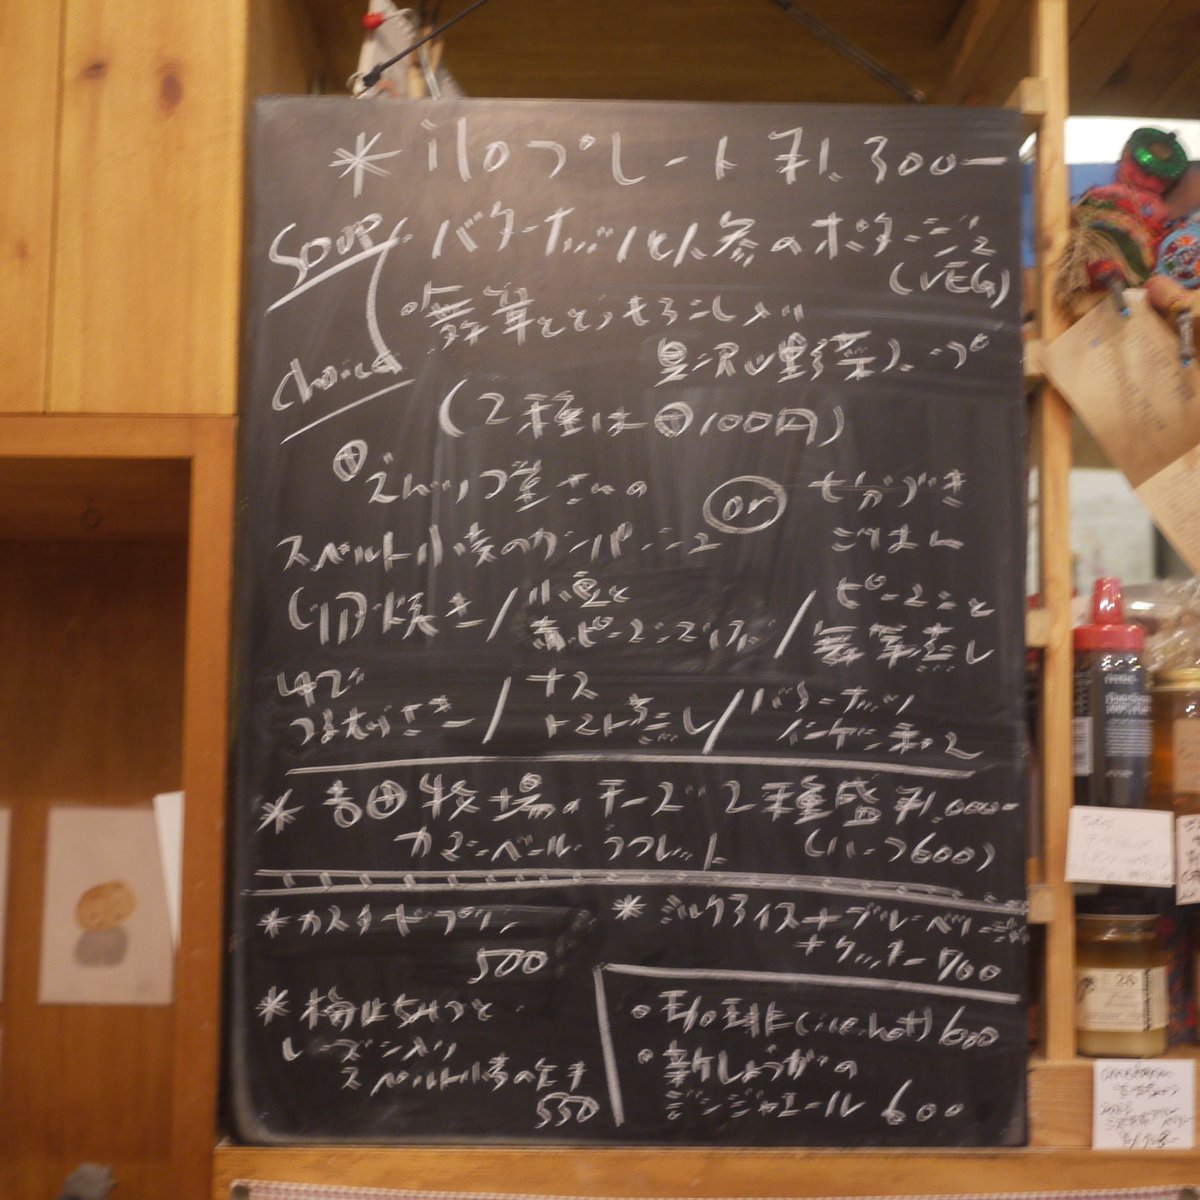 * iloプレート ¥1.300ー
Soup ・バターナッツと人参のポタージュ
choice (VEG)
・舞茸ととうもろこし入り
具沢山野菜スープ
(2種は⊕100円)
⊕ さんの or 七分づき
スペルト小麦のカンパーニュ ごはん
卵焼き / 小豆と / ピーマンと
赤ピーマン 舞茸蒸し
つるむらさき / ナス / バターナッツ
トマト蒸し インゲン和え
* 吉田牧場のチーズ2種盛 ¥1.000ー
カマンベール・ラクレット (ハーフ600)
* カスタードプリン * ミルクアイス+ブルーベリー
500 +クッキー 700
* 梅はちみつと ・珈琲(ice.hot) 600
レーズン入り ・新しょうがの
スペルト小麦のケーキ ジンジャエール 600
550